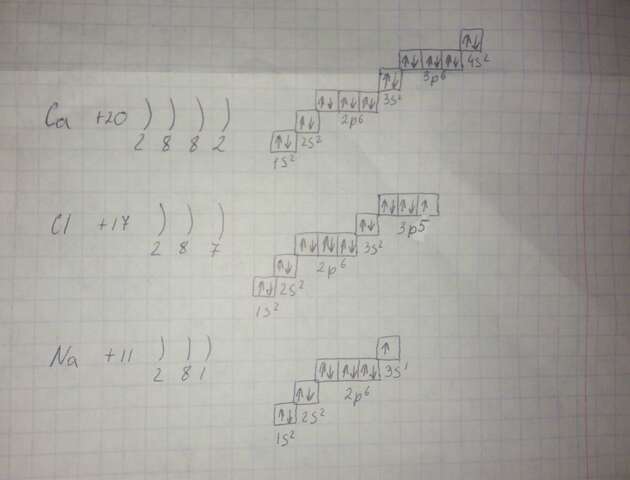 Ca +20 ) ) ) )
2 8 8 2
1s² 2s² 2p⁶ 3s² 3p⁶ 4s²
Cl +17 ) ) )
2 8 7
1s² 2s² 2p⁶ 3s² 3p5
Na +11 ) ) )
2 8 1
1s² 2s² 2p⁶ 3s¹